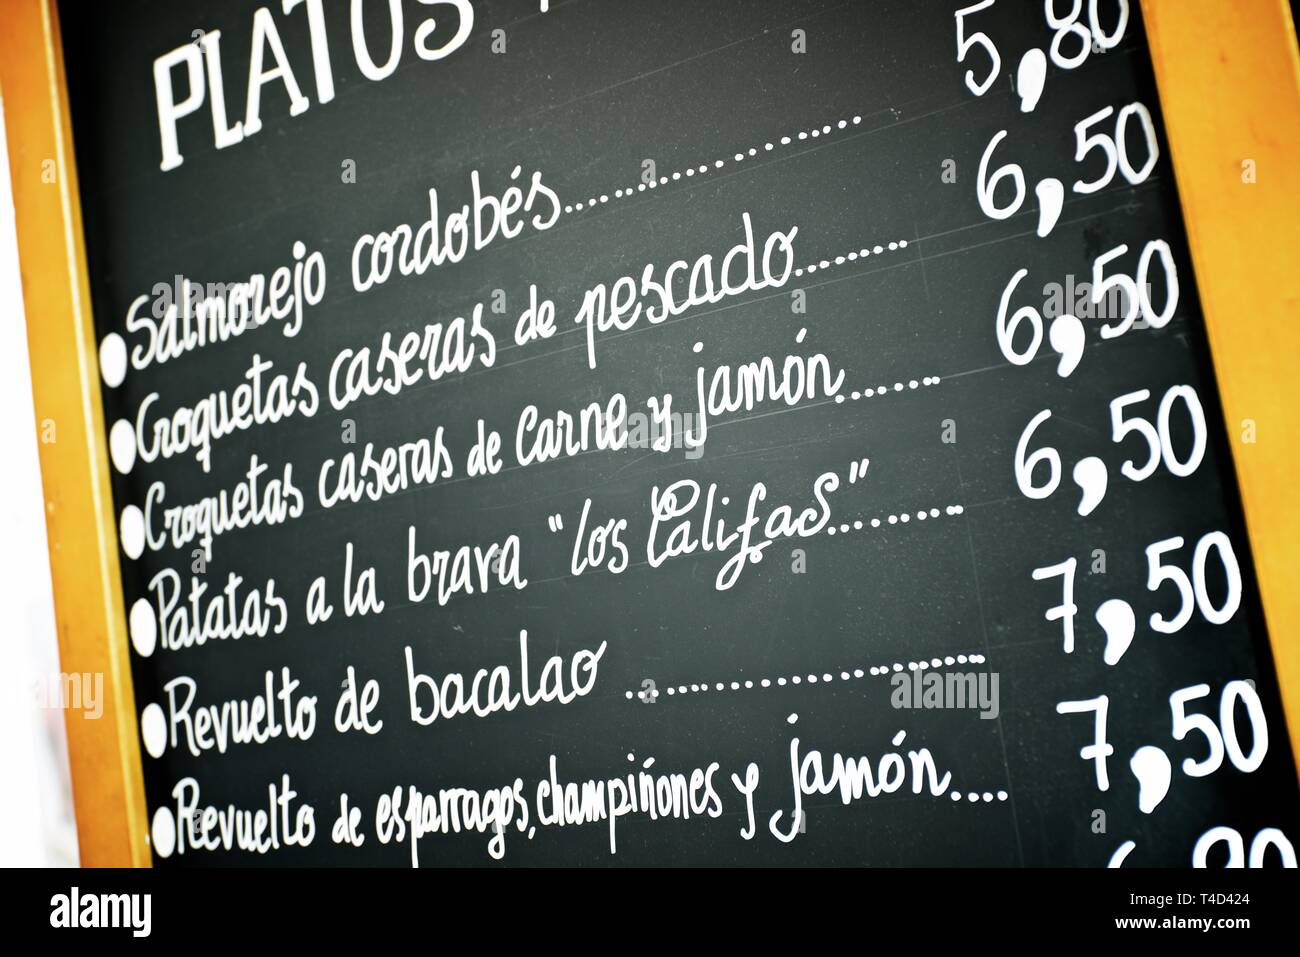 PLATOS
Salmorejo cordobés.................... 5,80
Croquetas caseras de pescado......... 6,50
Croquetas caseras de carne y jamón....... 6,50
Patatas a la brava "los Califas"......... 6,50
Revuelto de bacalao ........................ 7,50
Revuelto de esparragos, champiñones y jamón.... 7,50
alamy
Image ID: T4D424
www.alamy.com